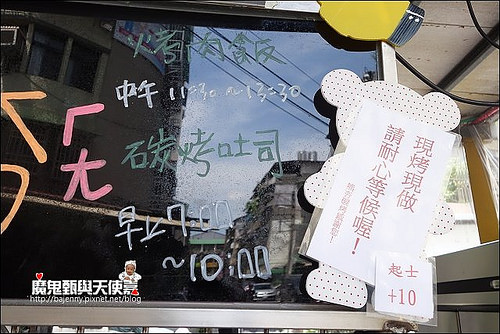 火烤肉拿飯
中午 11:30 ~ 13:30
ㄏ
ㄤ
碳烤吐司
早上7:00
~10:00
現烤現做
請耐心等候喔！
起士
+10
魔鬼甄與天使嘉
http://bajenny.pixnet.net/blog